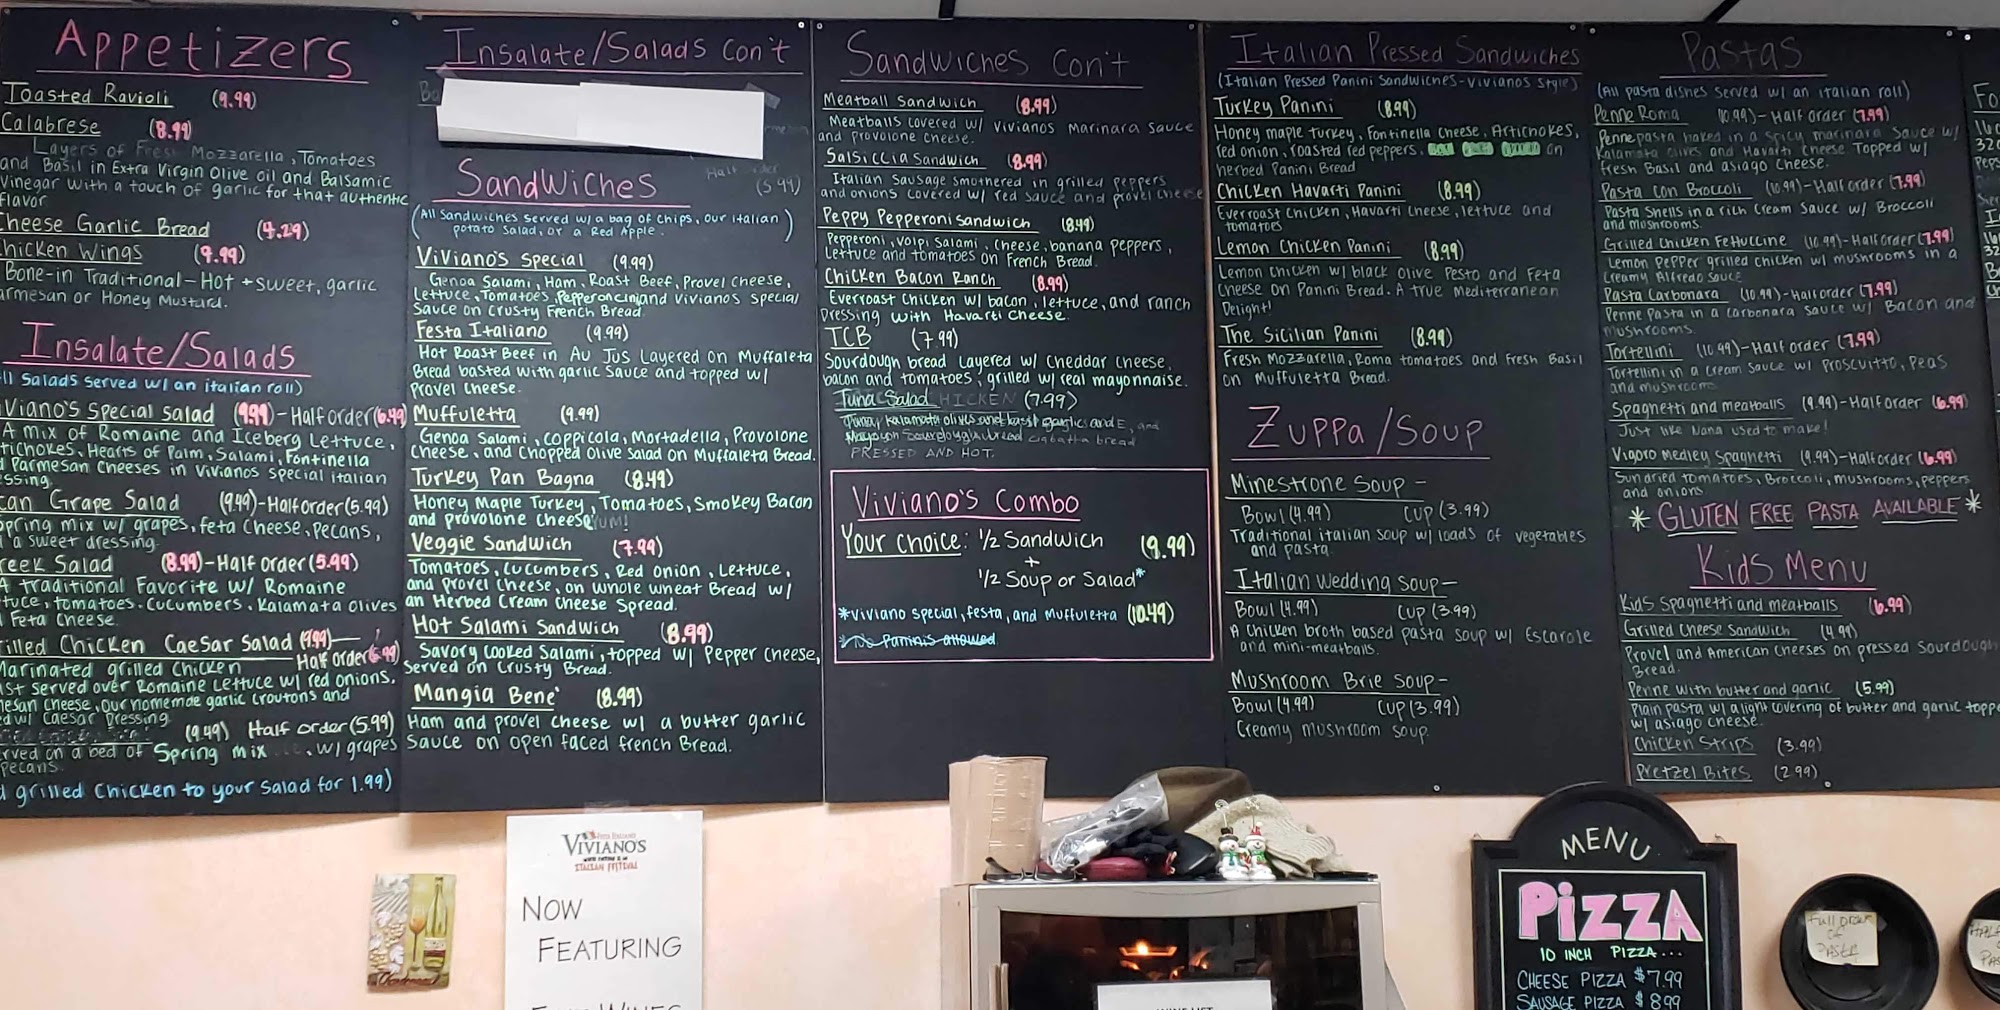 Appetizers
Toasted Ravioli (9.99)
Calabrese (8.99)
Layers of Fresh Mozzarella, Tomatoes
and Basil in Extra Virgin Olive Oil and Balsamic
Vinegar with a touch of garlic for that authentic
Flavor
Cheese Garlic Bread (4.29)
Chicken Wings (9.99)
Bone-in Traditional-Hot + sweet, garlic
armesan or Honey Mustard.
Insalate/Salads
ll Salads served w/ an italian roll)
iviano's Special Salad (9.99)-Half order (6.49)
A mix of Romaine and Iceberg Lettuce,
tichokes, Hearts of Palm, Salami, Fontinella
d Parmesan Cheeses in Vivianos special italian
ssing.
can Grape Salad (9.49)-Half order (5.99)
Spring mix w/ grapes, feta cheese, pecans,
a sweet dressing.
reek Salad (8.99)-Half order (5.99)
A traditional Favorite w/ Romaine
tuce, tomatoes, cucumbers, Kalamata olives
Feta Cheese.
rilled Chicken Caesar Salad (9.99)-
Half order
Marinated grilled Chicken
st served over Romaine Lettuce w/ red onions,
mesan cheese, our homemade garlic croutons and
ed w/ Caesar Dressing.
(9.49) Half order (5.99)
rved on a bed of Spring mix w/ grapes
pecans.
d grilled Chicken to your Salad for 1.99)
Insalate/Salads Con't
Half order
(5.99)
Sandwiches
(All Sandwiches served w/ a bag of chips, our italian
potato Salad, or a Red Apple.)
Viviano's Special (9.99)
Genoa Salami, Ham, Roast Beef, Provel Cheese,
Lettuce, Tomatoes, Pepperoncini and Vivianos Special
Sauce on Crusty French Bread
Festa Italiano (9.99)
Hot Roast Beef in Au Jus Layered on Muffaleta
Bread basted with garlic Sauce and topped w/
Provel Cheese.
Muffuletta (9.99)
Genoa Salami, coppicola, Mortadella, Provolone
Cheese, and Chopped Olive Salad on Muffaleta Bread.
Turkey Pan Bagna (8.49)
Honey Maple Turkey, Tomatoes, Smokey Bacon
and provolone Cheese YUM!
Veggie Sandwich (7.99)
Tomatoes, Cucumbers, Red Onion, Lettuce,
and Provel Cheese, on whole wheat Bread w/
an Herbed Cream Cheese Spread.
Hot Salami Sandwich (8.99)
Savory Cooked Salami, topped w/ Pepper Cheese,
served on Crusty Bread.
Mangia Bene' (8.99)
Ham and provel cheese w/ a butter garlic
Sauce on open faced french Bread.
Sandwiches Con't
Meatball Sandwich (8.99)
Meatballs covered w/ Vivianos Marinara Sauce
and provolone Cheese.
Salsiccia Sandwich (8.99)
Italian Sausage smothered in grilled peppers
and onions covered w/ red sauce and provel cheese
Peppy Pepperoni Sandwich (8.49)
Pepperoni, Volpi Salami, Cheese, banana peppers,
Lettuce and tomatoes on French Bread.
Chicken Bacon Ranch (8.99)
Everroast Chicken w/ bacon, lettuce, and ranch
Dressing with Havarti Cheese.
TCB (7.99)
Sourdough bread Layered w/ Cheddar Cheese,
bacon and tomatoes, grilled w/ real mayonnaise.
Tuna Salad CHICKEN (7.99)
PRESSED AND HOT.
Viviano's Combo
Your choice: 1/2 Sandwich (9.99)
+
1/2 Soup or Salad*
*Viviano special, festa, and Muffuletta (10.49)
*No Paninis allowed
Italian Pressed Sandwiches
(Italian Pressed Panini Sandwiches-Vivianos Style)
Turkey Panini (8.99)
Honey maple turkey, Fontinella Cheese, Artichokes,
red onion, roasted red peppers, on
herbed Panini Bread
Chicken Havarti Panini (8.99)
Everroast Chicken, Havarti Cheese, lettuce and
tomatoes
Lemon Chicken Panini (8.99)
Lemon Chicken w/ black olive Pesto and Feta
Cheese on Panini Bread. A true Mediterranean
Delight!
The Sicilian Panini (8.99)
Fresh Mozzarella, Roma tomatoes and Fresh Basil
on Muffuletta Bread.
Zuppa/Soup
Minestrone Soup-
Bowl (4.99) Cup (3.99)
Traditional italian soup w/ loads of vegetables
and pasta
Italian Wedding Soup-
Bowl (4.99) Cup (3.99)
A chicken broth based pasta soup w/ Escarole
and mini-meatballs.
Mushroom Brie Soup-
Bowl (4.99) Cup (3.99)
Creamy mushroom soup
Pastas
(All pasta dishes served w/ an italian roll)
Penne Roma (10.99)-Half order (7.99)
Penne pasta baked in a spicy marinara Sauce w/
Kalamata olives and Havarti Cheese Topped w/
Fresh Basil and asiago Cheese.
Pasta con Broccoli (10.99)-Half order (7.99)
Pasta Shells in a rich Cream Sauce w/ Broccoli
and mushrooms.
Grilled Chicken Fettuccine (10.99)-Half order (7.99)
Lemon Pepper grilled chicken w/ mushrooms in a
Creamy Alfredo sauce
Pasta Carbonara (10.99)-Half order (7.99)
Penne Pasta in a carbonara Sauce w/ Bacon and
mushrooms.
Tortellini (10.99)-Half order (7.99)
Tortellini in a cream Sauce w/ Proscuitto, Peas
and mushrooms
Spaghetti and meatballs (9.99)-Half order (6.99)
Just like Nana used to make!
Vigoro Medley Spaghetti (9.99)-Half order (6.99)
Sundried tomatoes, Broccoli, mushrooms, peppers
and onions
* GLUTEN FREE PASTA AVAILABLE *
Kids Menu
Kids Spaghetti and meatballs (6.99)
Grilled Cheese Sandwich (4.99)
Provel and American Cheeses on pressed Sourdough
Bread.
Penne with butter and garlic (5.99)
Plain pasta w/ a light covering of butter and garlic topp
w/ asiago cheese.
Chicken Strips (3.99)
Pretzel Bites (2.99)
VIVIANO'S
ITALIAN FESTIVAL
NOW
FEATURING
MENU
PIZZA
10 INCH PIZZA...
CHEESE PIZZA $7.99
SAUSAGE PIZZA $8.99
Full order
of
Pasta